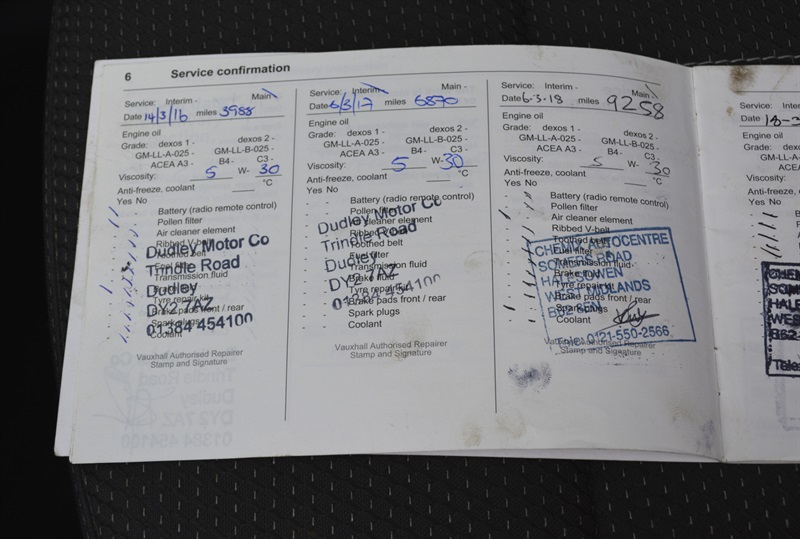 6 Service confirmation
Service: Interim - Main
Date 14/3/16 miles 3988
Engine oil
Grade: dexos 1 - dexos 2 -
GM-LL-A-025 - GM-LL-B-025 -
ACEA A3 - B4 - C3 -
Viscosity: 5 W- 30
Anti-freeze, coolant °C
Yes No
Battery (radio remote control)
Pollen filter
Air cleaner element
Ribbed V-belt
Transmission fluid
Tyre repair kit
Brake pads front / rear
Coolant
Dudley Motor Co
Trindle Road
Dudley
DY2 7AZ
01384 454100
Vauxhall Authorised Repairer
Stamp and Signature
Service: Interim Main -
Date 6/3/17 miles 6870
Engine oil
Grade: dexos 1 - dexos 2 -
GM-LL-A-025 - GM-LL-B-025 -
ACEA A3 - B4 - C3 -
Viscosity: 5 W- 30
Anti-freeze, coolant °C
Yes No
Battery (radio remote control)
Pollen filter
Air cleaner element
Ribbed V-belt
Toothed belt
Fuel filter
Transmission fluid
Brake fluid
Tyre repair kit
Brake pads front / rear
Spark plugs
Coolant
Dudley Motor Co
Trindle Road
Dudley
DY2 7AZ
01384 454100
Vauxhall Authorised Repairer
Stamp and Signature
Service: Interim - Main
Date 6-3-18 miles 9258
Engine oil
Grade: dexos 1 - dexos 2 -
GM-LL-A-025 - GM-LL-B-025 -
ACEA A3 - B4 - C3 -
Viscosity: 5 W- 30
Anti-freeze, coolant °C
Yes No
Battery (radio remote control)
Pollen filter
Air cleaner element
Ribbed V-belt
Toothed belt
Fuel filter
Transmission fluid
Brake fluid
Tyre repair kit
Brake pads front / rear
Spark plugs
Coolant
AUTOCENTRE
ROAD
HALESOWEN
WEST MIDLANDS
Tele: 0121-550-2566
Vauxhall Authorised Repairer
Stamp and Signature
Service:
Date 18-
Engine oil
Grade:
GM-LL-A
ACEA
Viscosity:
Anti-freeze,
Yes No